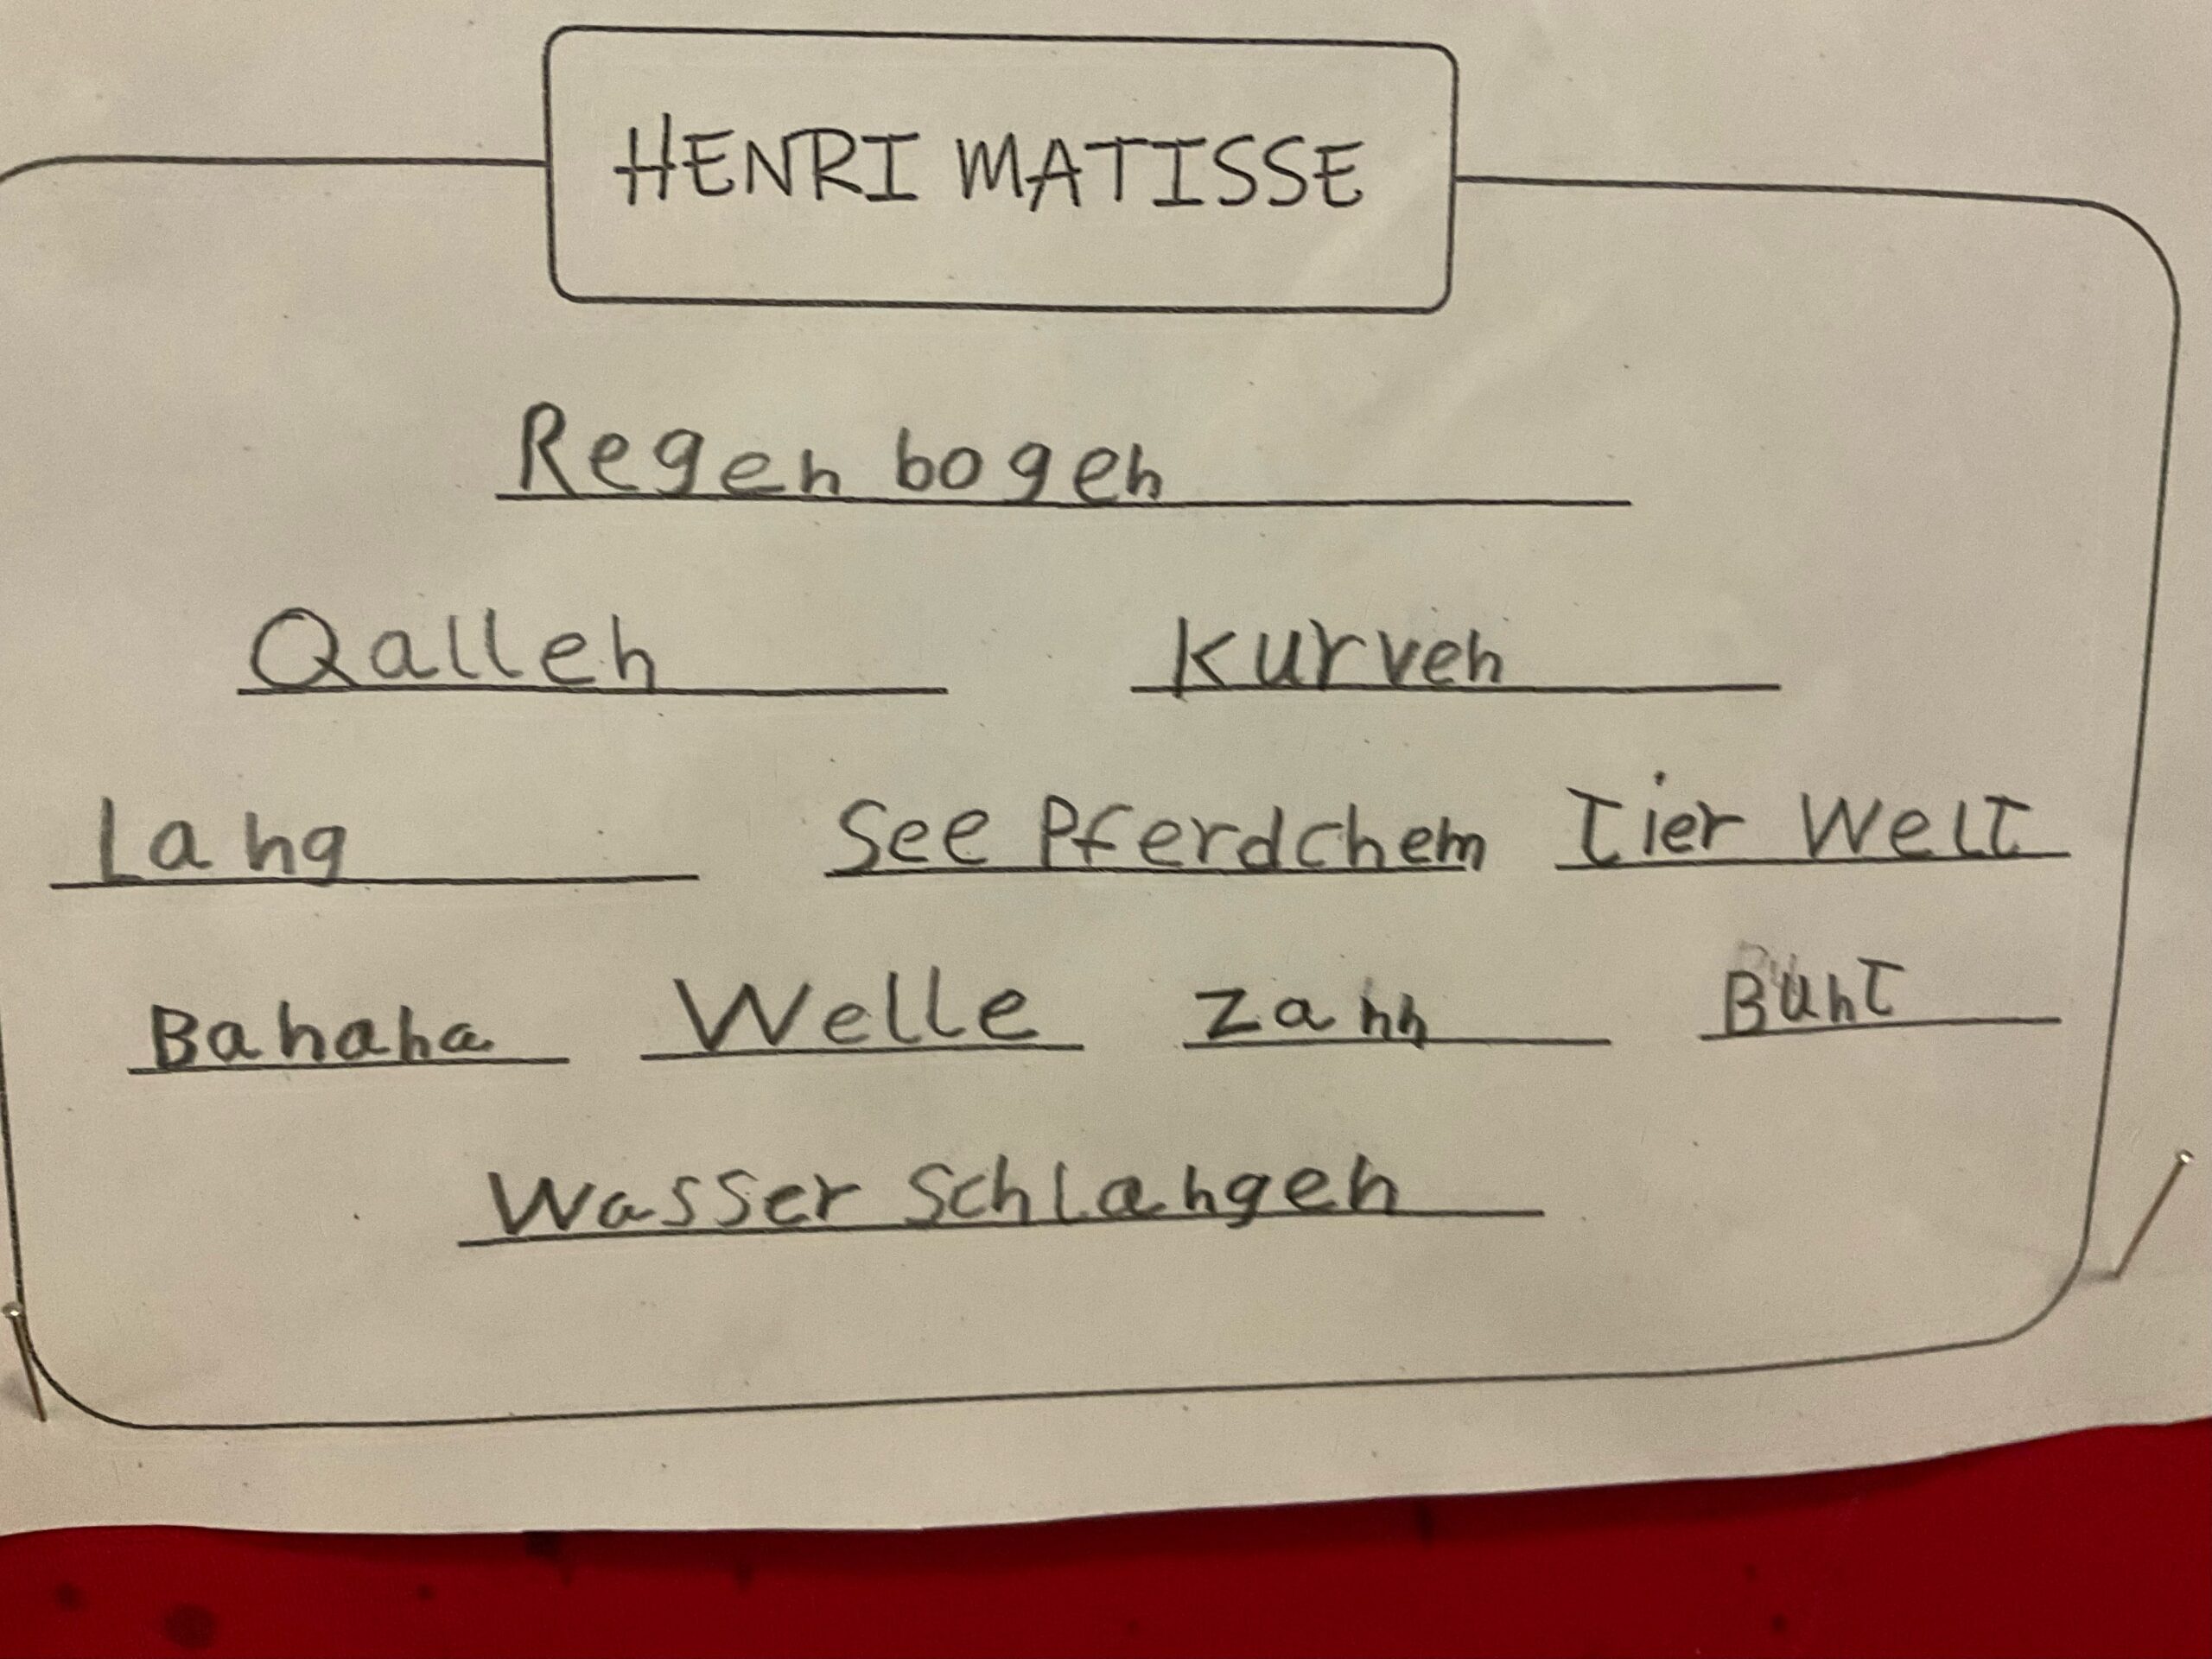 HENRI MATISSE
Regen bogen
Qallen Kurven
Lang See Pferdchem Tier Welt
Banana Welle Zann Bunt
Wasser Schlangen